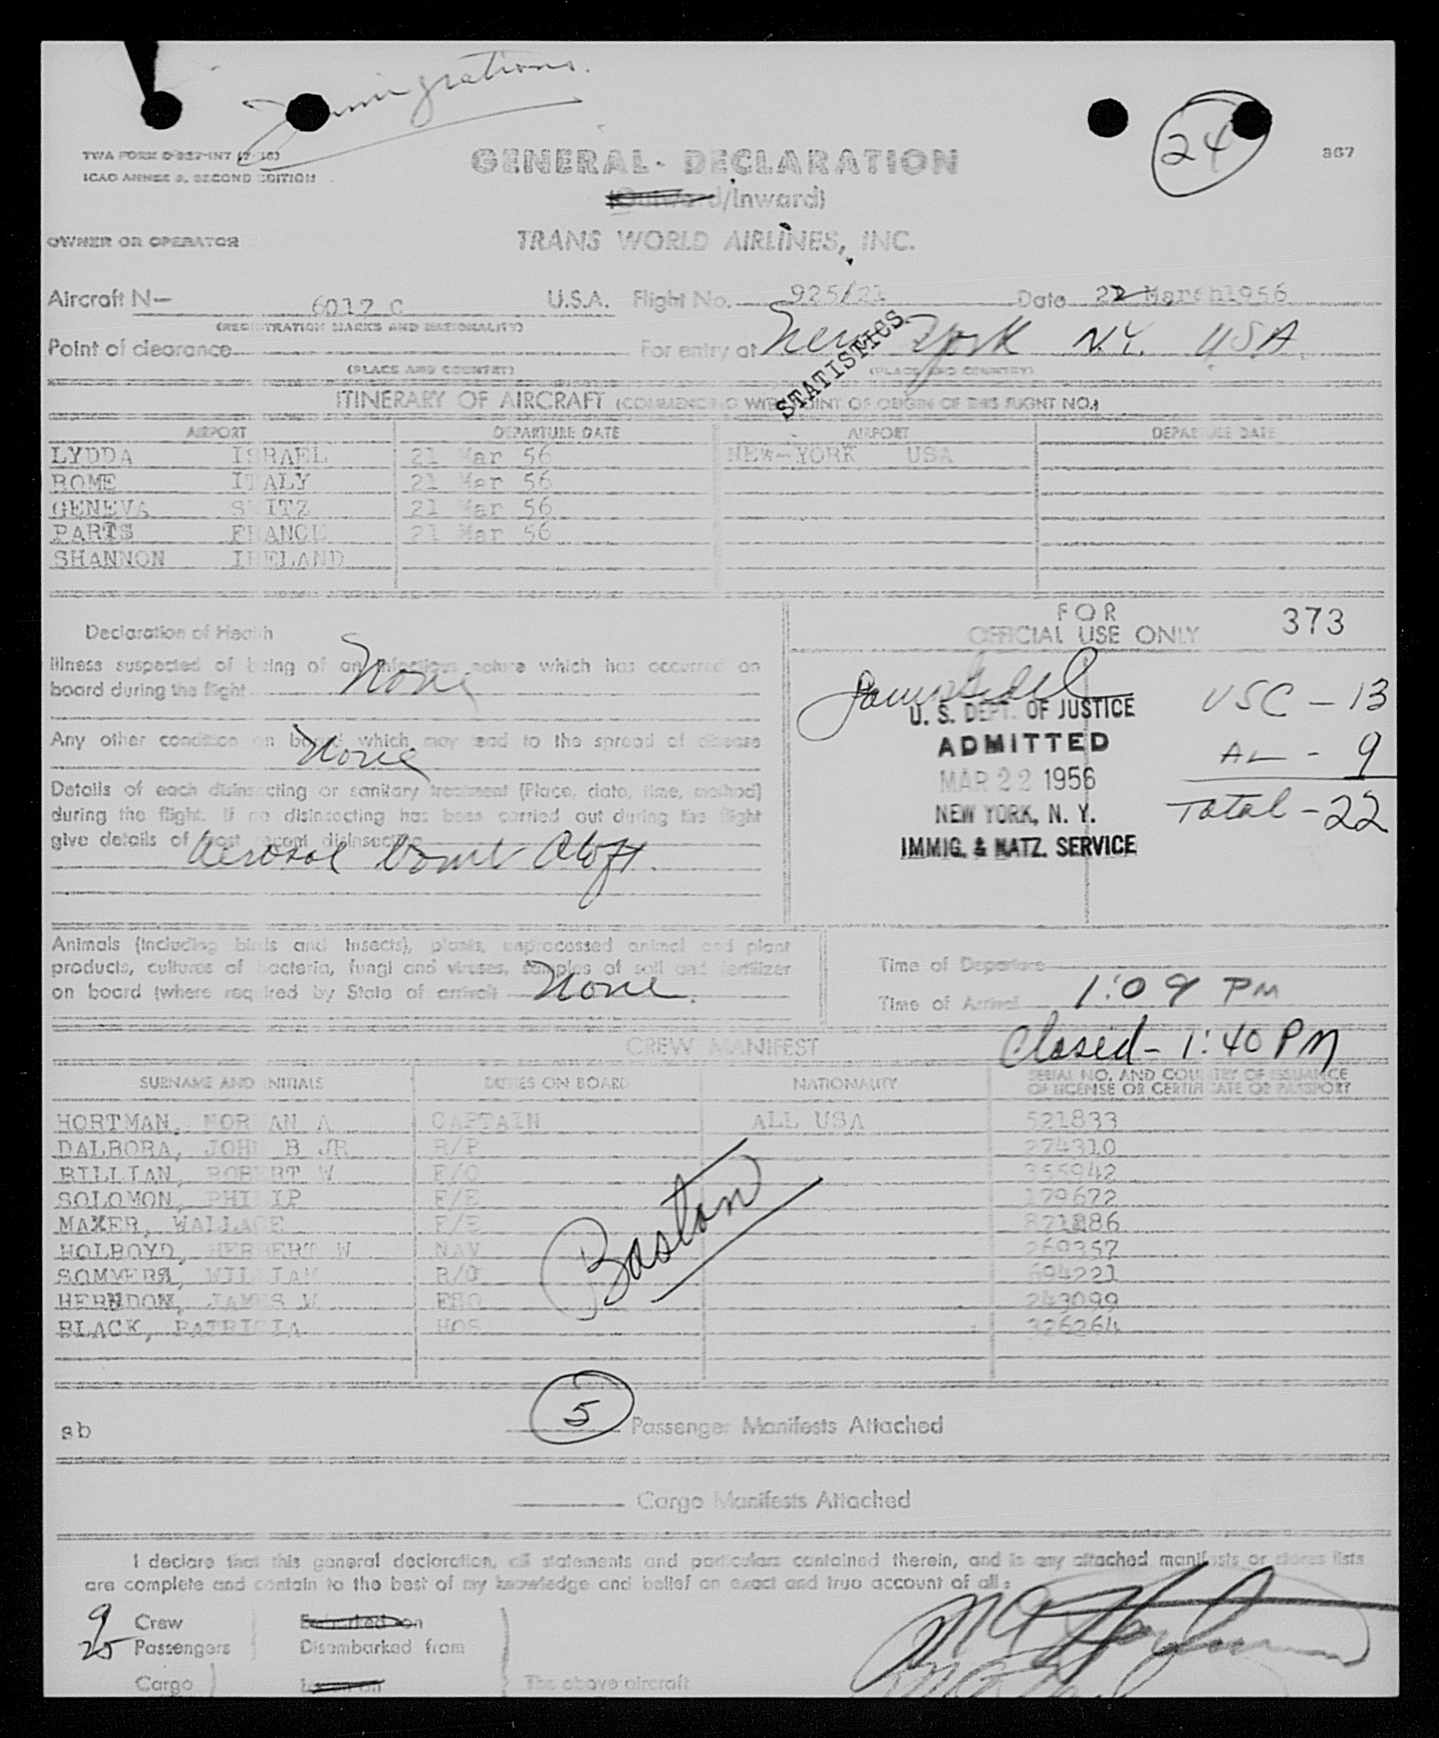 Immigrations.
24
TWA FORM
ICAO ANNEX 9, SECOND EDITION
GENERAL DECLARATION
367
(Outward/Inward)
OWNER OR OPERATOR
TRANS WORLD AIRLINES, INC.
Aircraft N— 6017 C U.S.A. Flight No. 925/21 Date 22 March 1956
(REGISTRATION MARKS AND NATIONALITY)
Point of clearance For entry at New York N.Y. USA
(PLACE AND COUNTRY) (PLACE AND COUNTRY)
STATISTICS
ITINERARY OF AIRCRAFT (COMMENCING WITH POINT OF ORIGIN OF THIS FLIGHT NO.)
AIRPORT DEPARTURE DATE AIRPORT DEPARTURE DATE
LYDDA ISRAEL 21 Mar 56 NEW-YORK USA
ROME ITALY 21 Mar 56
GENEVA SWITZ 21 Mar 56
PARIS FRANCE 21 Mar 56
SHANNON IRELAND
FOR
OFFICIAL USE ONLY 373
Declaration of Health
Illness suspected of being of an infectious nature which has occurred on
board during the flight None
Any other condition on board which may lead to the spread of disease
None
Details of each disinsecting or sanitary treatment (Place, date, time, method)
during the flight. If no disinsecting has been carried out during the flight
give details of most recent disinsecting
Aerosol Bomb Aloft.
U. S. DEPT. OF JUSTICE
ADMITTED
MAR 22 1956
NEW YORK, N. Y.
IMMIG. & NATZ. SERVICE
USC - 13
AL - 9
Total - 22
Animals (including birds and insects), plants, unprocessed animal and plant
products, cultures of bacteria, fungi and viruses, samples of soil and fertilizer
on board (where required by State of arrival) None.
Time of Departure
Time of Arrival 1:09 PM
Closed - 1:40 PM
CREW MANIFEST
SURNAME AND INITIALS DUTIES ON BOARD NATIONALITY SERIAL NO. AND COUNTRY OF ISSUANCE
OF LICENSE OR CERTIFICATE OR PASSPORT
HORTMAN, NORMAN A CAPTAIN ALL USA 521833
DALBORA, JOHN B JR R/P 274310
BILLIAN, ROBERT W F/O 355942
SOLOMON, PHILIP F/E 179672
MAXER, WALLACE F/E 821886
HOLBOYD, HERBERT W NAV 269357
SOMMERS, WILLIAM R/O 694221
HERNDON, JAMES W 243099
BLACK, PATRICIA HOS 326264
Boston
sb
5 Passenger Manifests Attached
Cargo Manifests Attached
I declare that this general declaration, all statements and particulars contained therein, and in any attached manifests or stores lists
are complete and contain to the best of my knowledge and belief an exact and true account of all:
9 Crew Embarked on
25 Passengers Disembarked from
Cargo The above aircraft